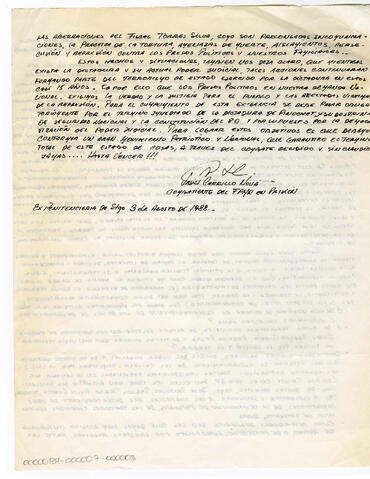 LAS ABERRACIONES DEL FISCAL TORRES SILVA, COMO SON PARCONSADAS INCOMUNICA-
CIONES, LA PRACTICA DE LA TORTURA, AMENAZAS DE MUERTE, AISLAMIENTOS,
Y REPRESIÓN CONTRA LOS PRESOS POLÍTICOS Y NUESTROS FAMILIARES.
ESTOS HECHOS Y SITUACIONES, TAMBIÉN NOS DEJA CLARO, QUE MIENTRAS
EXISTA LA DICTADURA Y SU ACTUAL PODER JUDICIAL, TALES ACCIONES CONTINUARAN
FORMANDO PARTE DEL TERRORISMO DE ESTADO EJERCIDO POR LA DICTADURA EN ESTOS
CASI 15 AÑOS. ES POR ELLO QUE LOS PRESOS POLÍTICOS EN NUESTRA DEMANDA NA-
CIONAL, EXIGIMOS LA VERDAD Y LA JUSTICIA PARA EL PUEBLO Y LAS VICTIMAS
DE LA REPRESIÓN, PARA EL CUMPLIMIENTO DE ESTA EXIGENCIA SE DEBE PASAR OBLIGA-
TORIAMENTE POR EL TERMINO INMEDIATO DE LA DICTADURA DE PINOCHET, Y SU DOCTRINA
DE SEGURIDAD NACIONAL Y LA CONSTITUCIÓN DEL 80, Y POR SUPUESTO POR LA DEMOCRA-
TIZACIÓN DEL PODER JUDICIAL. PARA LOGRAR ESTOS OBJETIVOS EL QUE DEBEMOS
CONSTRUIR UN GRAN MOVIMIENTO PATRIOTICO Y LIBERADOR, QUE GARANTICE EL TERMINO
TOTAL DE ESTE ESTADO DE COSAS, A TRAVES DEL COMBATE DECIDIDO Y SIN
.... HASTA VENCER!!!
CARRILLO NOVA
COMBATIENTE DEL FPMR EN PRISIÓN
EX PENITENCIARIA DE STGO 3 DE AGOSTO DE 1988.-
00000184-000007-000003